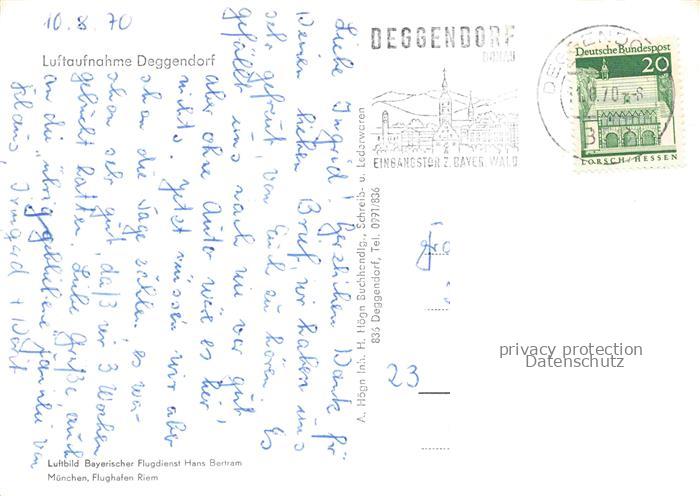 10.8.70
Luftaufnahme Deggendorf
Liebe Ingrid! Herzlichen Dank für
Deinen lieben Brief, wir haben uns
sehr gefreut, von Euch zu hören. Es
gefällt uns nach wie vor gut
aber ohne Auto wäre es hier
nichts. Jetzt müssen wir aber
schon die Tage zählen, es war
schon sehr gut, daß wir 3 Wochen
gebucht hatten. Liebe Grüße, auch
an die "übriggebliebene" Familie von
Klaus, Irmgard + Walt
Luftbild Bayerischer Flugdienst Hans Bertram
München, Flughafen Riem
A. Högn Inh. H. Högn Buchhandlg., Schreib- u. Lederwaren
836 Deggendorf, Tel. 0991/836
DEGGENDORF
DONAU
EINGANGSTOR Z. BAYER. WALD
DEGGENDORF
70
Deutsche Bundespost
20
LORSCH/HESSEN
23
privacy protection
Datenschutz